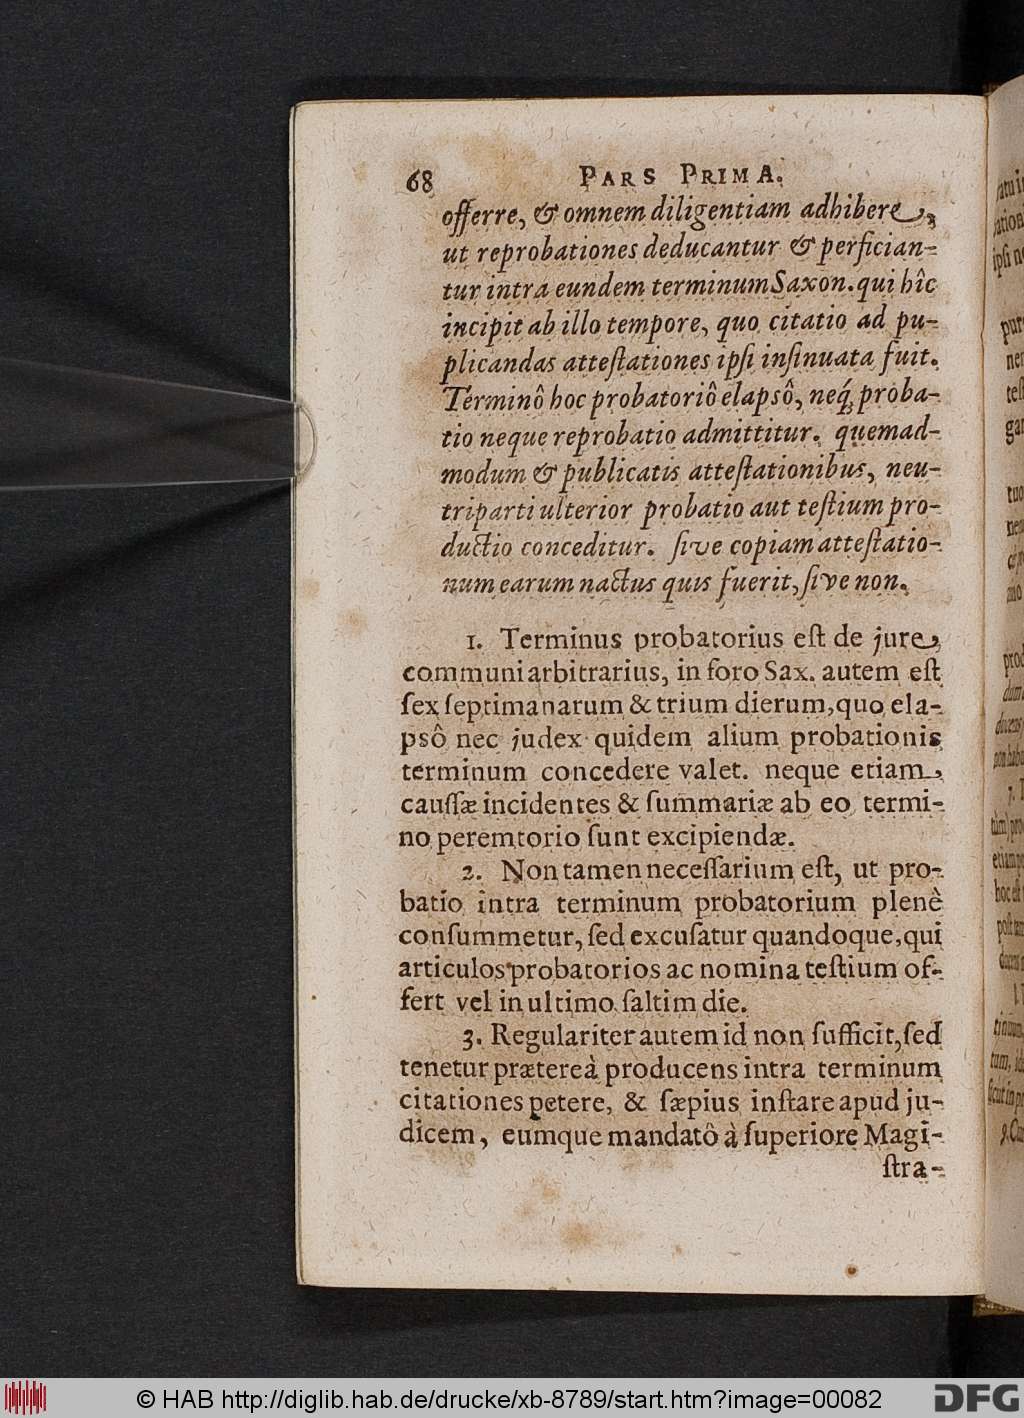 68 PARS PRIMA.
offerre, & omnem diligentiam adhibere,
ut reprobationes deducantur & perfician-
tur intra eundem terminum Saxon. qui hîc
incipit ab illo tempore, quo citatio ad pu-
plicandas atteſtationes ipſi inſinuata fuit.
Terminô hoc probatoriô elapsô, neq; proba-
tio neque reprobatio admittitur. quemad-
modum & publicatis atteſtationibus, neu-
tri parti ulterior probatio aut teſtium pro-
ductio conceditur. ſive copiam atteſtatio-
num earum nactus quis fuerit, ſive non.
1. Terminus probatorius eſt de jure
communi arbitrarius, in foro Sax. autem eſt
ſex ſeptimanarum & trium dierum, quo ela-
psô nec judex quidem alium probationis
terminum concedere valet. neque etiam
cauſſæ incidentes & ſummariæ ab eo termi-
no peremtorio ſunt excipiendæ.
2. Non tamen neceſſarium eſt, ut pro-
batio intra terminum probatorium plenè
conſummetur, ſed excuſatur quandoque, qui
articulos probatorios ac nomina teſtium of-
fert vel in ultimo ſaltim die.
3. Regulariter autem id non ſufficit, ſed
tenetur prætereà producens intra terminum
citationes petere, & ſæpius inſtare apud ju-
dicem, eumque mandatô à ſuperiore Magi-
ſtra-
© HAB http://diglib.hab.de/drucke/xb-8789/start.htm?image=00082
DFG